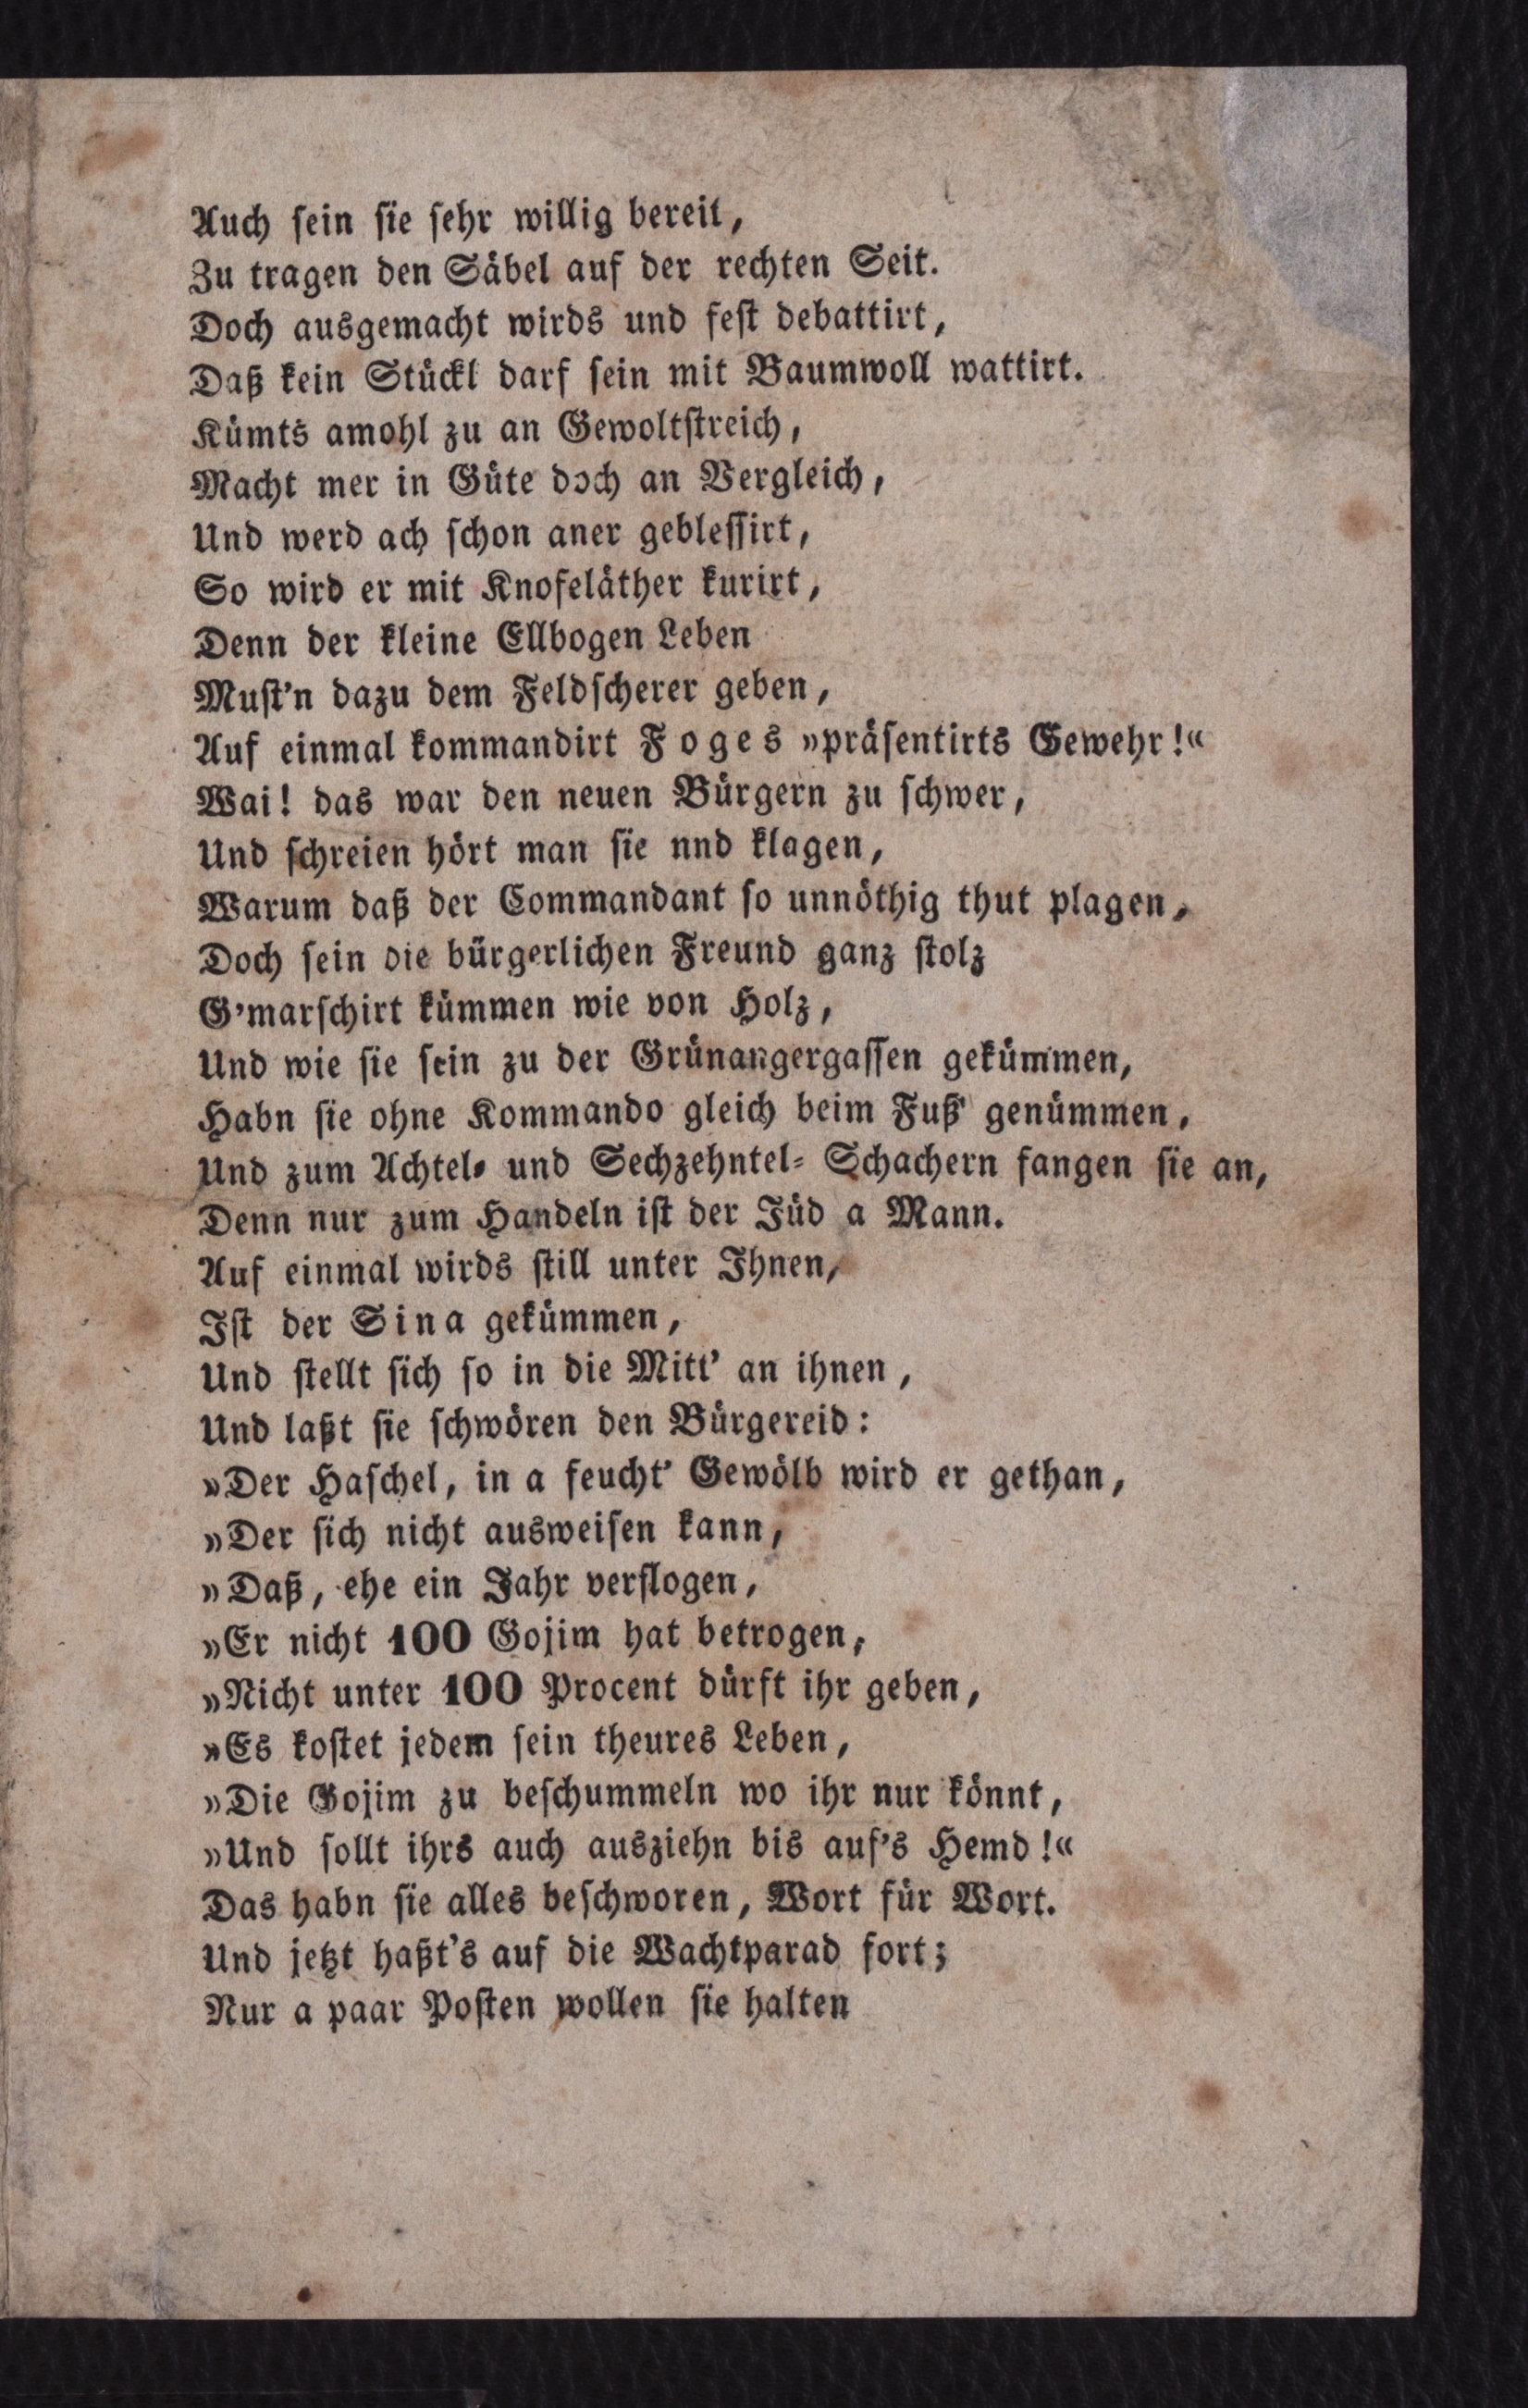 Auch sein sie sehr willig bereit,
Zu tragen den Säbel auf der rechten Seit.
Doch ausgemacht wirds und fest debattirt,
Daß kein Stückl darf sein mit Baumwoll wattirt.
Kümts amohl zu an Gewoltstreich,
Macht mer in Güte doch an Vergleich,
Und werd ach schon aner geblessirt,
So wird er mit Knofeläther kurirt,
Denn der kleine Ellbogen Leben
Must'n dazu dem Feldscherer geben,
Auf einmal kommandirt Foges »präsentirts Gewehr!«
Wai! das war den neuen Bürgern zu schwer,
Und schreien hört man sie nnd klagen,
Warum daß der Commandant so unnöthig thut plagen,
Doch sein die bürgerlichen Freund ganz stolz
G'marschirt kümmen wie von Holz,
Und wie sie sein zu der Grünangergassen gekümmen,
Habn sie ohne Kommando gleich beim Fuß' genümmen,
Und zum Achtel- und Sechzehntel- Schachern fangen sie an,
Denn nur zum Handeln ist der Jüd a Mann.
Auf einmal wirds still unter Ihnen,
Ist der Sina gekümmen,
Und stellt sich so in die Mitt' an ihnen,
Und laßt sie schwören den Bürgereid:
»Der Haschel, in a feucht' Gewölb wird er gethan,
»Der sich nicht ausweisen kann,
»Daß, ehe ein Jahr verflogen,
»Er nicht 100 Gojim hat betrogen,
»Nicht unter 100 Procent dürft ihr geben,
»Es kostet jedem sein theures Leben,
»Die Gojim zu beschummeln wo ihr nur könnt,
»Und sollt ihrs auch ausziehn bis auf's Hemd!«
Das habn sie alles beschworen, Wort für Wort.
Und jetzt haßt's auf die Wachtparad fort;
Nur a paar Posten wollen sie halten